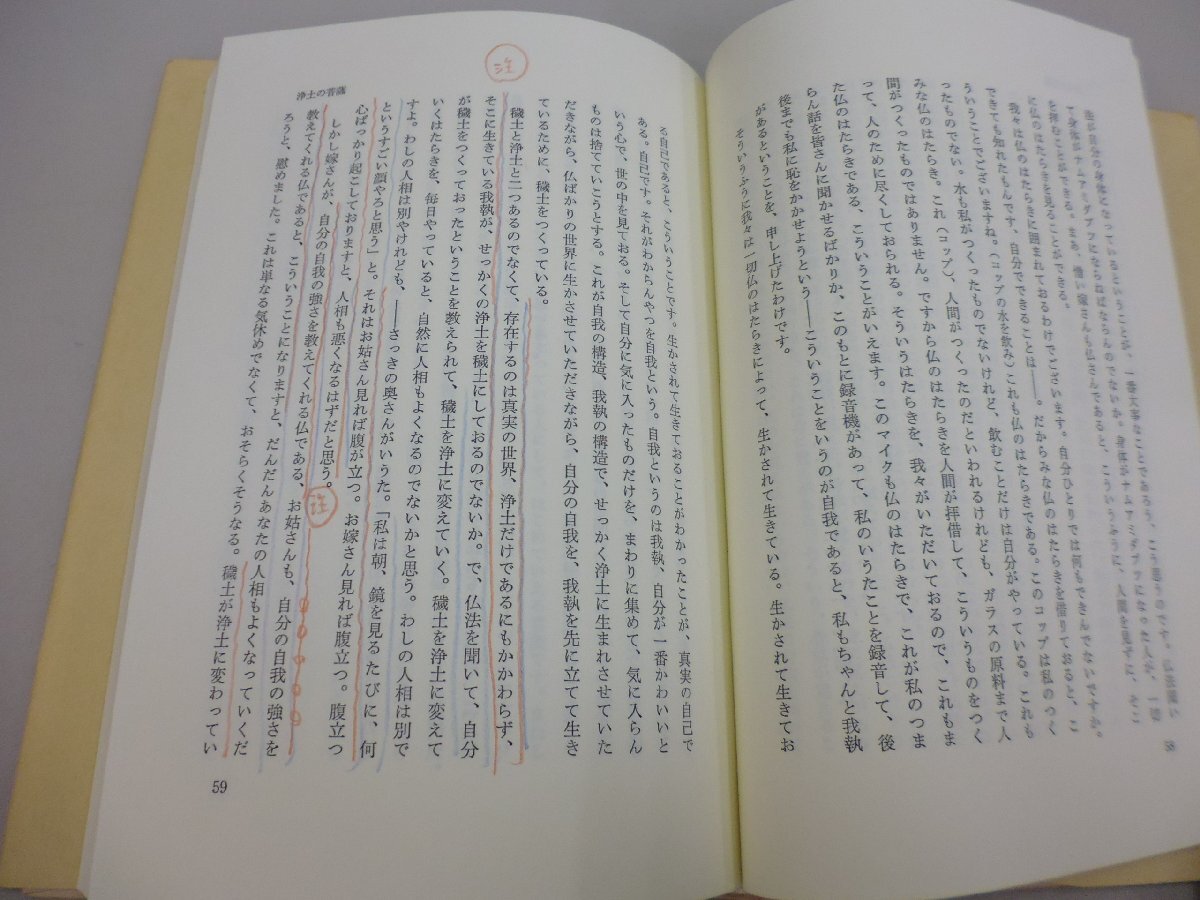 法が自分の身体になっているということが、一番大事なことであろう、こう思うのです。仏法聞い
て身体がナムアミダブツにならねばならんのでないか。身体がナムアミダブツになった人が、一切
を拝むことができる。まあ、憎い嫁さんも仏さんであると、こういうふうに、人間を見ずに、そこ
に仏のはたらきを見ることができる。
我々は仏のはたらきに囲まれておるわけでございます。自分ひとりでは何もできんでないですか。
できても知れたもんです、自分でできることは——。だからみな仏のはたらきを借りておると、こ
ういうことでございますね。(コップの水を飲み)これも仏のはたらきである。このコップは私のつく
ったものでない。水も私がつくったものでないけれど、飲むことだけは自分がやっている。これも
みな仏のはたらき。これ(コップ)、人間がつくったのだといわれるけれども、ガラスの原料まで人
間がつくったものではありません。ですから仏のはたらきを人間が拝借して、こういうものをつく
って、人のために尽くしておられる。そういうはたらきを、我々がいただいておるので、これもま
た仏のはたらきである、こういうことがいえます。このマイクも仏のはたらきで、これが私のつま
らん話を皆さんに聞かせるばかりか、このもとに録音機があって、私のいうことを録音して、後
後までも私に恥をかかせようという——こういうことをいうのが自我であると、私もちゃんと我執
があるということを、申し上げたわけです。
そういうふうに我々は一切仏のはたらきによって、生かされて生きている。生かされて生きてお
58
る自己であると、こういうことです。生かされて生きておることがわかったことが、真実の自己で
ある。自己です。それがわからんやつを自我という。自我というのは我執、自分が一番かわいいと
いう心で、世の中を見ておる。そして自分に気に入ったものだけを、まわりに集めて、気に入らん
ものは捨てていこうとする。これが自我の構造、我執の構造で、せっかく浄土に生まれさせていた
だきながら、仏ばかりの世界に生かさせていただきながら、自分の自我を、我執を先に立てて生き
ているために、穢土をつくっている。
穢土と浄土と二つあるのでなくて、存在するのは真実の世界、浄土だけであるにもかかわらず、
注
そこに生きている我執が、せっかくの浄土を穢土にしておるのでないか。で、仏法を聞いて、自分
が穢土をつくっておったということを教えられて、穢土を浄土に変えていく。穢土を浄土に変えて
いくはたらきを、毎日やっていると、自然に人相もよくなるのでないかと思う。わしの人相は別で
すよ。わしの人相は別やけれども、——さっきの奥さんがいった。「私は朝、鏡を見るたびに、何
というすごい顔やろと思う」と。それはお姑さん見れば腹が立つ。お嫁さん見れば腹立つ。腹立つ
心ばっかり起こしておりますと、人相も悪くなるはずだと思う。
注
しかし嫁さんが、自分の自我の強さを教えてくれる仏である、お姑さんも、自分の自我の強さを
教えてくれる仏であると、こういうことになりますと、だんだんあなたの人相もよくなっていくだ
ろうと、慰めました。これは単なる気休めでなくて、おそらくそうなる。穢土が浄土に変わってい
浄土の菩薩
59